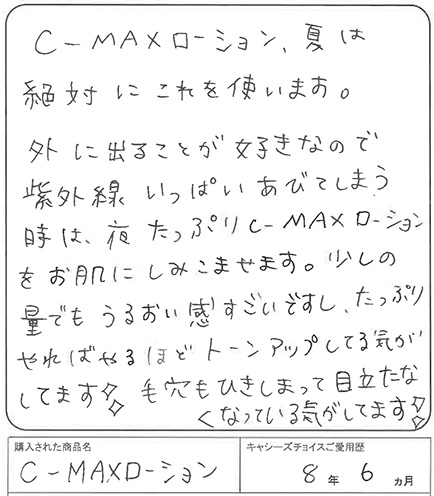 C-MAXローション、夏は
絶対にこれを使います。
外に出ることが好きなので
紫外線いっぱいあびてしまう
時は、夜たっぷりC-MAXローション
をお肌にしみこませます。少しの
量でもうるおい感すごいですし、たっぷり
やればやるほどトーンアップしてる気が
してます!! 毛穴もひきしまって目立たな
くなっている気がしてます!!
購入された商品名
C-MAXローション
キャシーズチョイスご愛用歴
8年6ヵ月